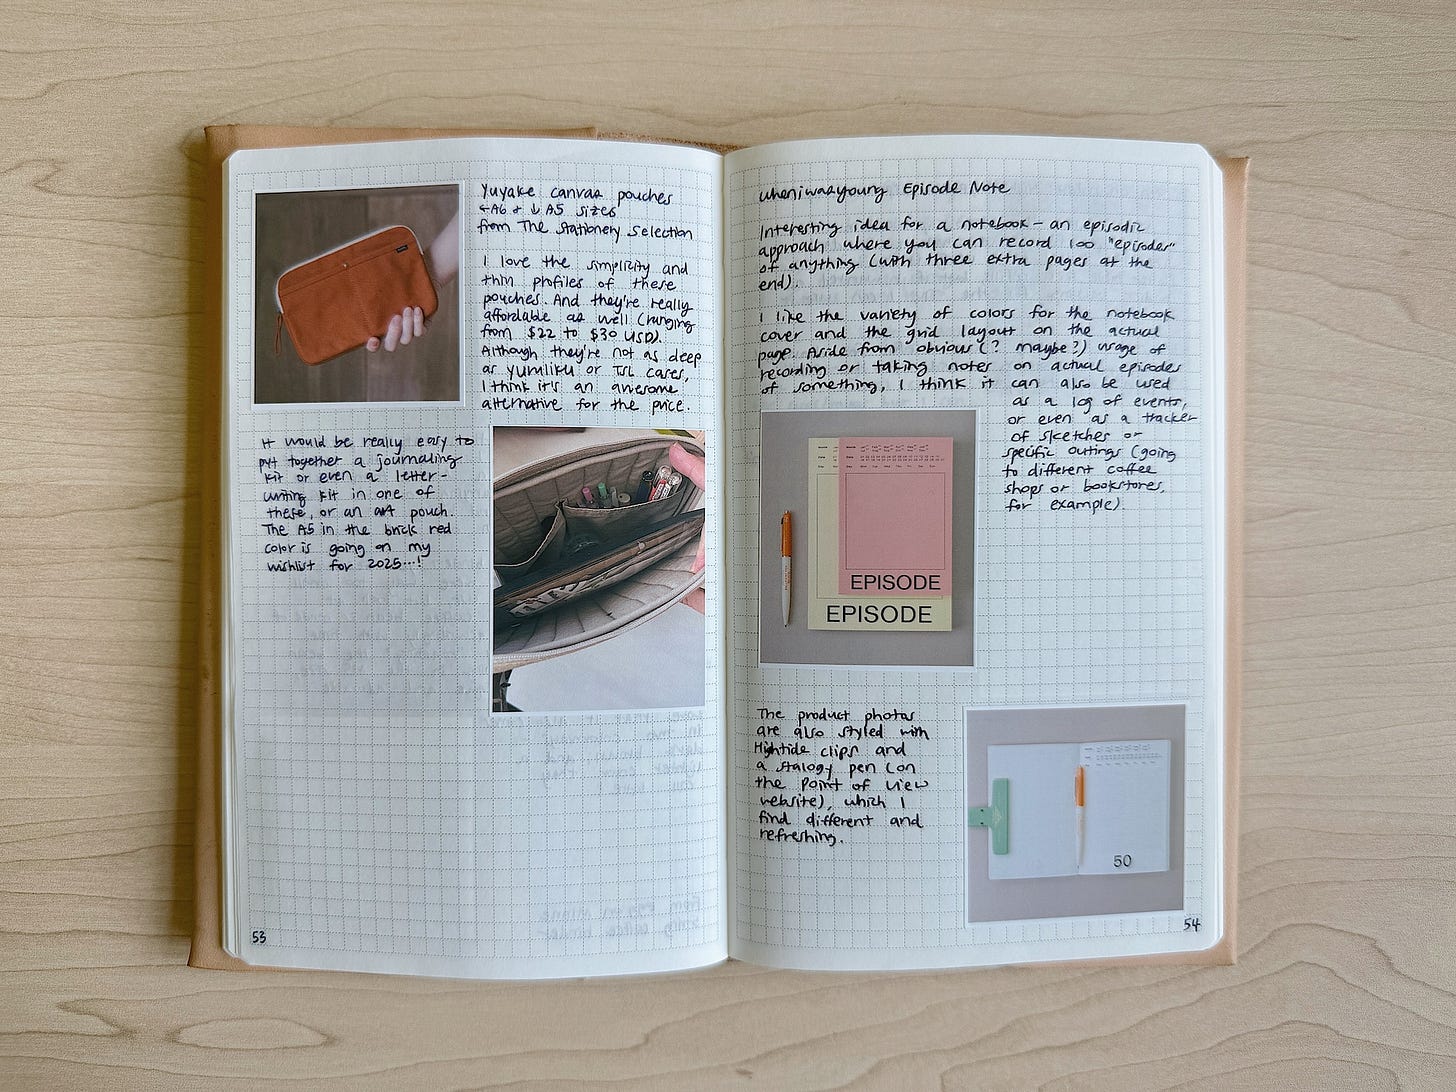 Yuyake canvas pouches
← A6 & ↓ A5 sizes
from The Stationery Selection
I love the simplicity and
thin profiles of these
pouches. And they're really
affordable as well (ranging
from $22 to $30 USD).
Although they're not as deep
as yumiliku or TSL cases,
I think it's an awesome
alternative for the price.
It would be really easy to
put together a journaling
kit or even a letter-
writing kit in one of
these, or an art pouch.
The A5 in the brick red
color is going on my
wishlist for 2025...!
53
wheniwasyoung Episode Note
Interesting idea for a notebook - an episodic
approach where you can record 100 "episodes"
of anything (with three extra pages at the
end).
I like the variety of colors for the notebook
cover and the grid layout on the actual
page. Aside from obvious (? maybe?) usage of
recording or taking notes on actual episodes
of something, I think it can also be used
as a log of events,
or even as a tracker
of sketches or
specific outings (going
to different coffee
shops or bookstores,
for example).
EPISODE
EPISODE
The product photos
are also styled with
Hightide clips and
a Stalogy pen (on
the Point of View
website), which I
find different and
refreshing.
50
54